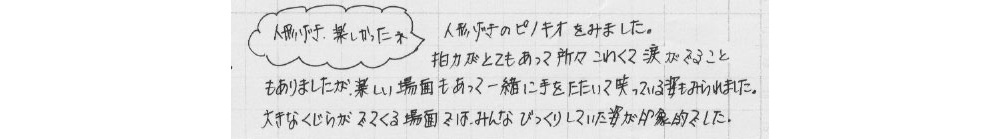 人形げき、楽しかったネ
人形げきのピノキオをみました。
拍力がとてもあって所々こわくて涙がでること
もありましたが、楽しい場面もあって一緒に手をたたいて笑っている姿もみられました。
大きなくじらがでてくる場面では、みんなびっくりしていた姿が印象的でした。